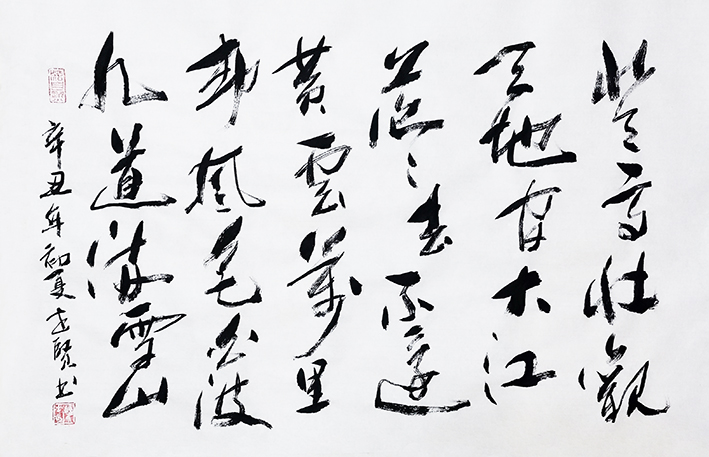 登高壯觀
天地間大江
茫茫去不還
黄雲萬里
動風色白波
九道流雪山
辛丑年初夏 賢书